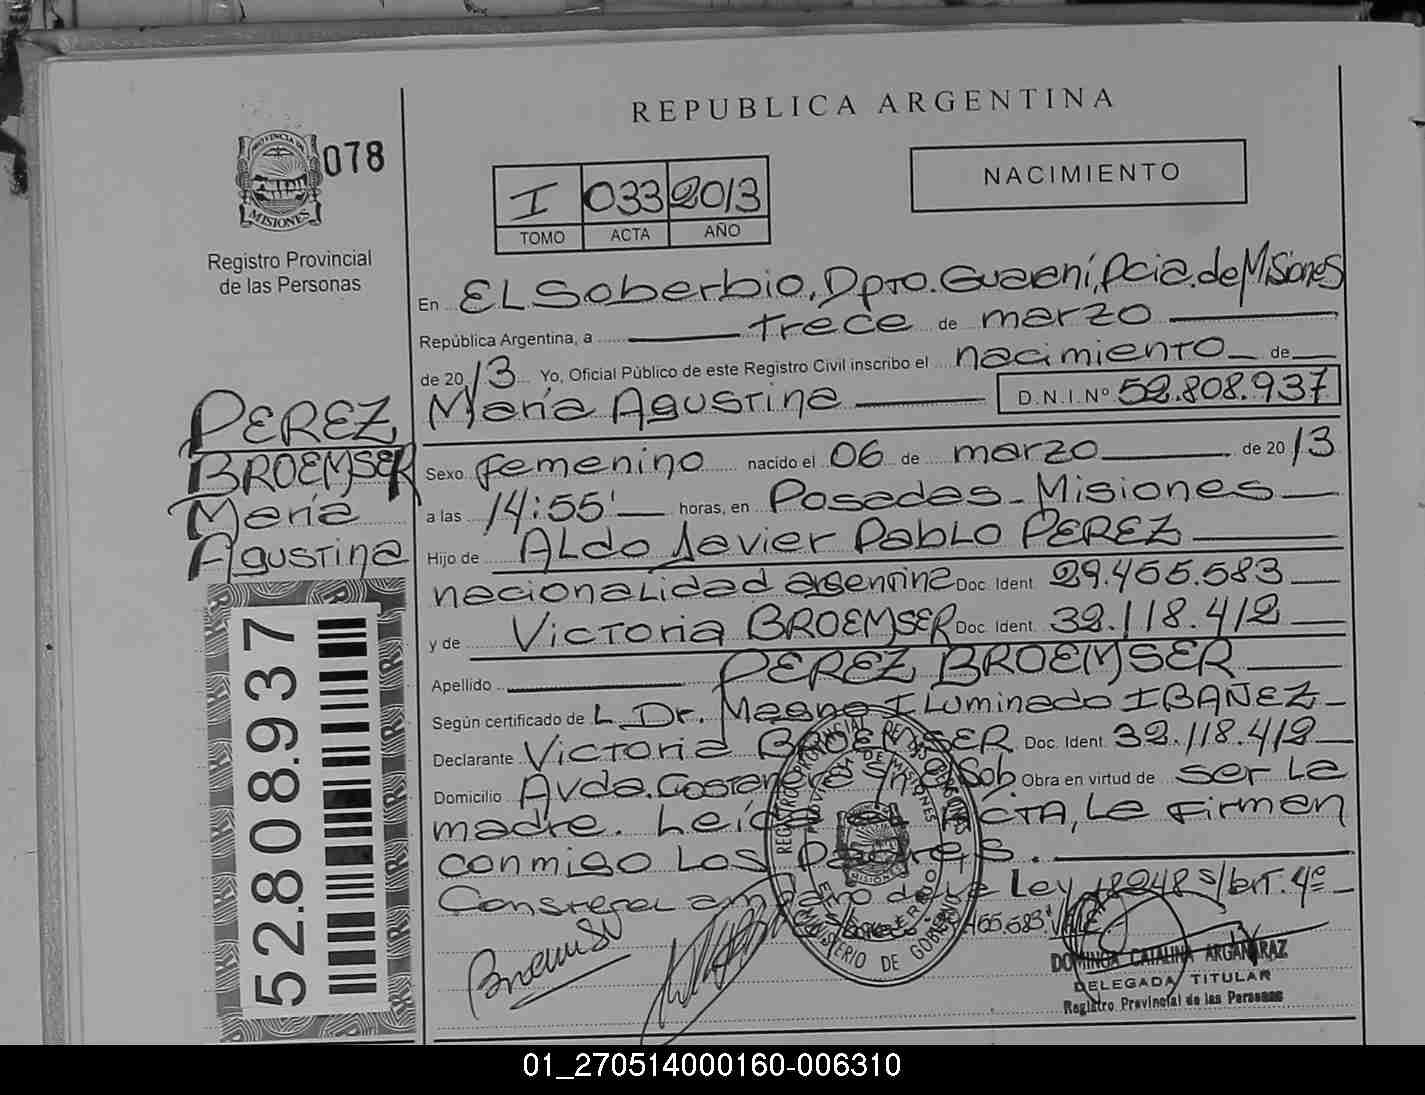 REPUBLICA ARGENTINA
PROVINCIA DE
MISIONES
078
Registro Provincial
de las Personas
I 033 2013
TOMO ACTA AÑO
NACIMIENTO
En EL Soberbio, Dpto. Guaraní, Pcia. de Misiones
República Argentina, a trece de marzo
de 2013 Yo, Oficial Público de este Registro Civil inscribo el nacimiento de
María Agustina D.N.I.Nº 52.808.937
PEREZ
BROEMSER
María
Agustina
Sexo femenino nacido el 06 de marzo de 2013
a las 14:55' horas, en Posadas - Misiones
Hijo de ALdo Javier Pablo PEREZ
nacionalidad argentina Doc. Ident. 29.455.583
y de Victoria BROEMSER Doc. Ident. 32.118.412
Apellido PEREZ BROEMSER
Según certificado de L Dr. Magno Iluminado IBAÑEZ
Declarante Victoria BROEMSER Doc. Ident. 32.118.412
Domicilio Avda. Costanera S/n El Sob. Obra en virtud de ser La
madre. Leída el ACTA, La Firman
conmigo Los Padres.
Ley 18248 s/ArT. 4º
455.583' VALE.
REGISTRO PROVINCIAL DE LAS PERSONAS
PROVINCIA DE MISIONES
MISIONES
EL SOBERBIO
MINISTERIO DE GOBIERNO
DOMINGA CATALINA ARGAÑARAZ
DELEGADA TITULAR
Registro Provincial de las Personas
52.808.937
01_270514000160-006310